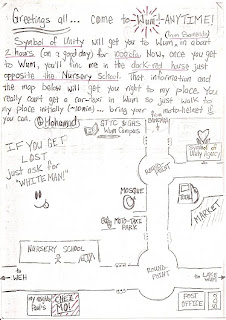 Greetings all... come to Wum - ANYTIME!
(from Bamenda)
Symbol of Unity will get you to Wum, in about
2 hours (on a good day) for 1000cfa. Now, once you get
to Wum, you'll find me in the dark-red house just
opposite the Nursery School. That information and
the map below will get you right to my place. You
really can't get a car-taxi in Wum so just walk to
my place initially (~10min)... bring your moto-helmet if
you can.
Mohamed
IF YOU GET
LOST
just ask for
"WHITEMAN!"
from
BAMENDA
Symbol of
Unity Agency
ROUND-
POINT
MOSQUE
MARKET
MOTO-TAXI
PARK
NURSERY SCHOOL
ROUND-
POINT
to
WEH
to
CHEZ
MOI
POST
OFFICE